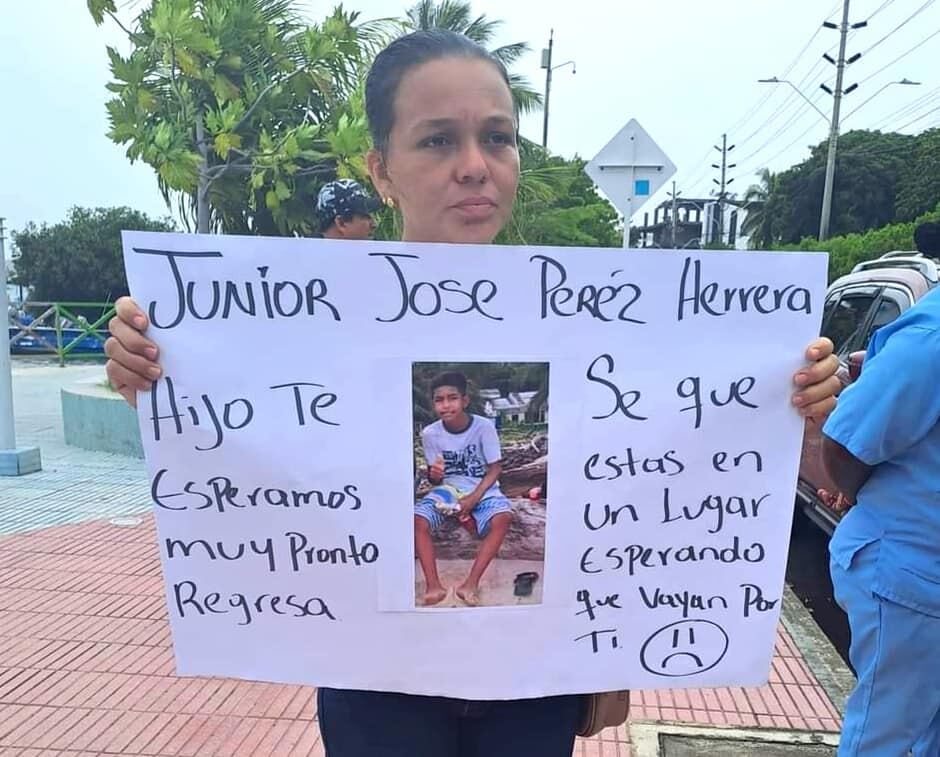 JUNIOR Jose Peréz Herrera
Hijo Te
Esperamos
muy Pronto
Regresa
Se que
estas en
un Lugar
Esperando
que Vayan Por
Ti.